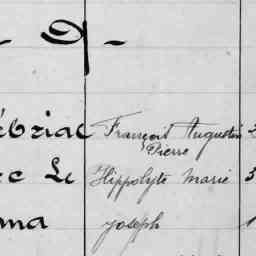 - Q -
ébriac François Augustin 2
Pierre
ec Le Hippolyte Marie 5
ma Joseph 1